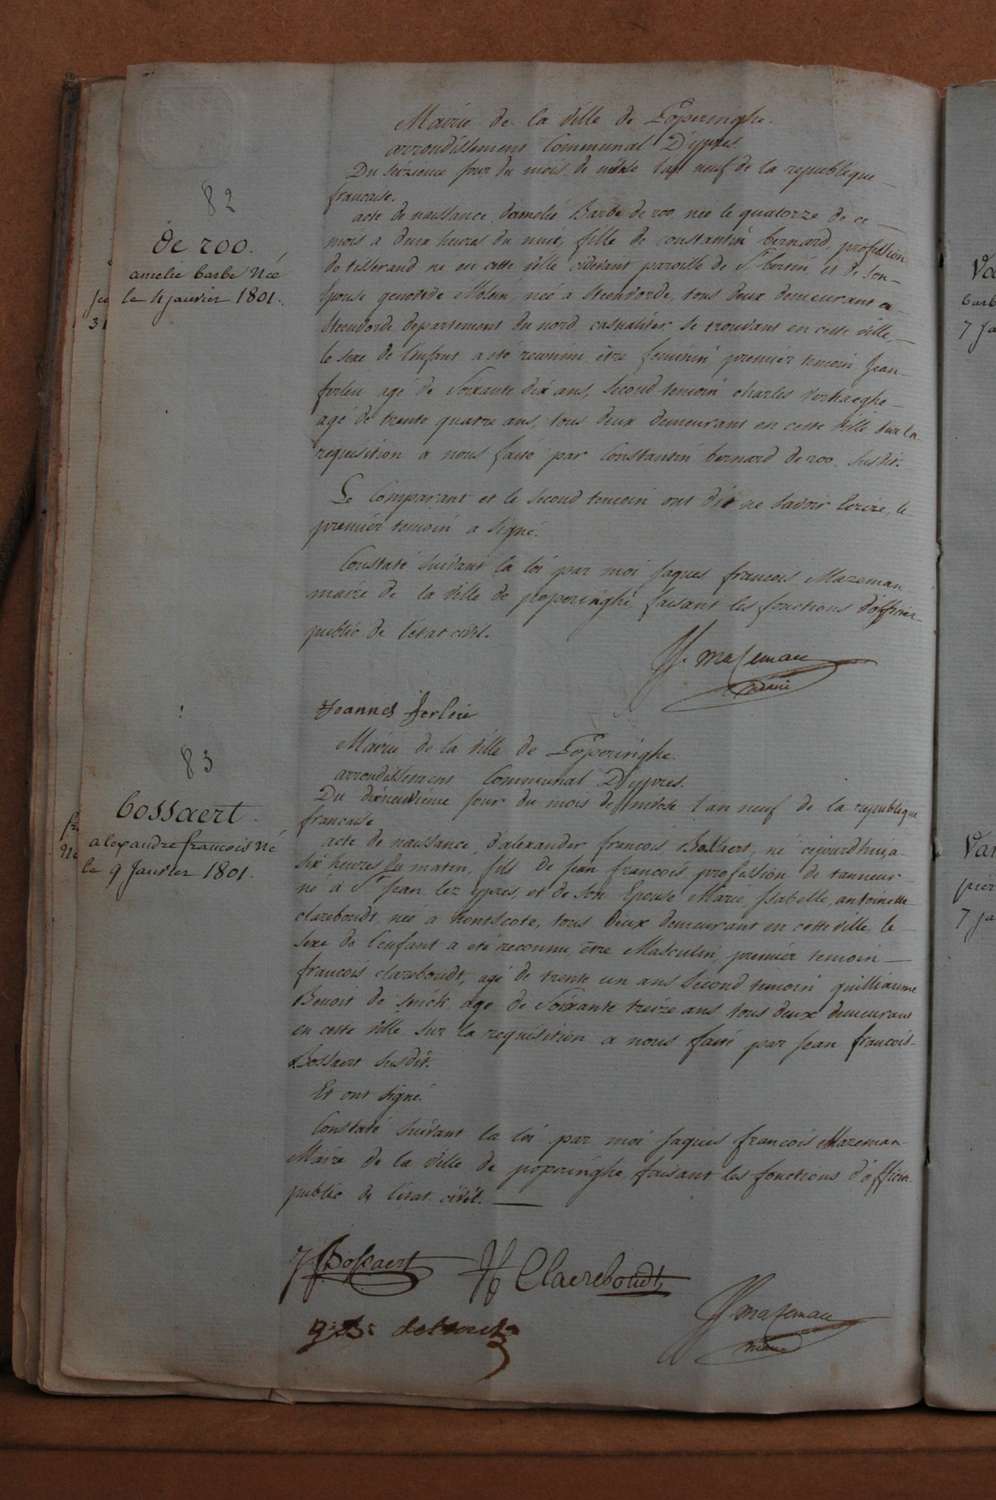 82
de roo.
amelie barbe Née
le 4 janvier 1801.
Mairie de la ville de Poperinghe.
arrondissement Communal D'ypres.
Du seizieme jour du mois de nivose l'an neuf de la republique
francaise.
acte de naissance d'amelie Barbe de roo née le quatorze de ce
mois a deux heures du nuit, fille de constantin bernard, profession
de tisserand né en cette ville cidevant paroisse de St bertin et de son
Epouse genoveve née a Steenvorde, tous deux demeurant a
Steenvorde departement du nord casualiter se trouvant en cette ville
le sexe de l'enfant a été reconnu être feminin premier temoin Jean
ferlein agé de Soixante dix ans, second temoin charles verhaeghe
agé de trente quatre ans, tous deux demeurant en cette ville sur la
requisition a nous faite par Constantin bernard de roo susdit.
Le Comparant et le second temoin ont dit ne savoir ecrire, le
premier temoin a signé.
Constaté suivant la loi par moi jaques francois Mazeman
maire de la ville de poperinghe faisant les fonctions d'officier
public de l'etat civil.
JF. mazeman
maire
Joannes ferlein
83
bossaert.
alexandre francois né
le 9 janvier 1801.
Mairie de la ville de Poperinghe.
arrondissement Communal D'ypres.
Du dixneuvieme jour du mois de nivose l'an neuf de la republique
francaise
acte de naissance d'alexander francois Bossaert, né aujourdhui a
six heures du matin, fils de jean francois profession de tanneur
né à St Jean lez ypres, et de son Epouse Marie Isabelle, antoinette
clareboudt, née à hontscote, tous deux demeurant en cette ville, le
sexe de l'enfant a été reconnu être Masculin, premier temoin
francois clareboudt, agé de trente un ans second temoin guilliaume
Benoit de agé de Soixante treize ans tous deux demeurans
en cette ville sur la requisition a nous faite par jean francois
Bossaert susdit.
Et ont signé.
Constaté suivant la loi par moi jaques francois Mazeman
Maire de la ville de poperinghe, faisant les fonctions d'officier
public de l'etat civil.
JF Bossaert
Clareboudt
JF. mazeman
maire